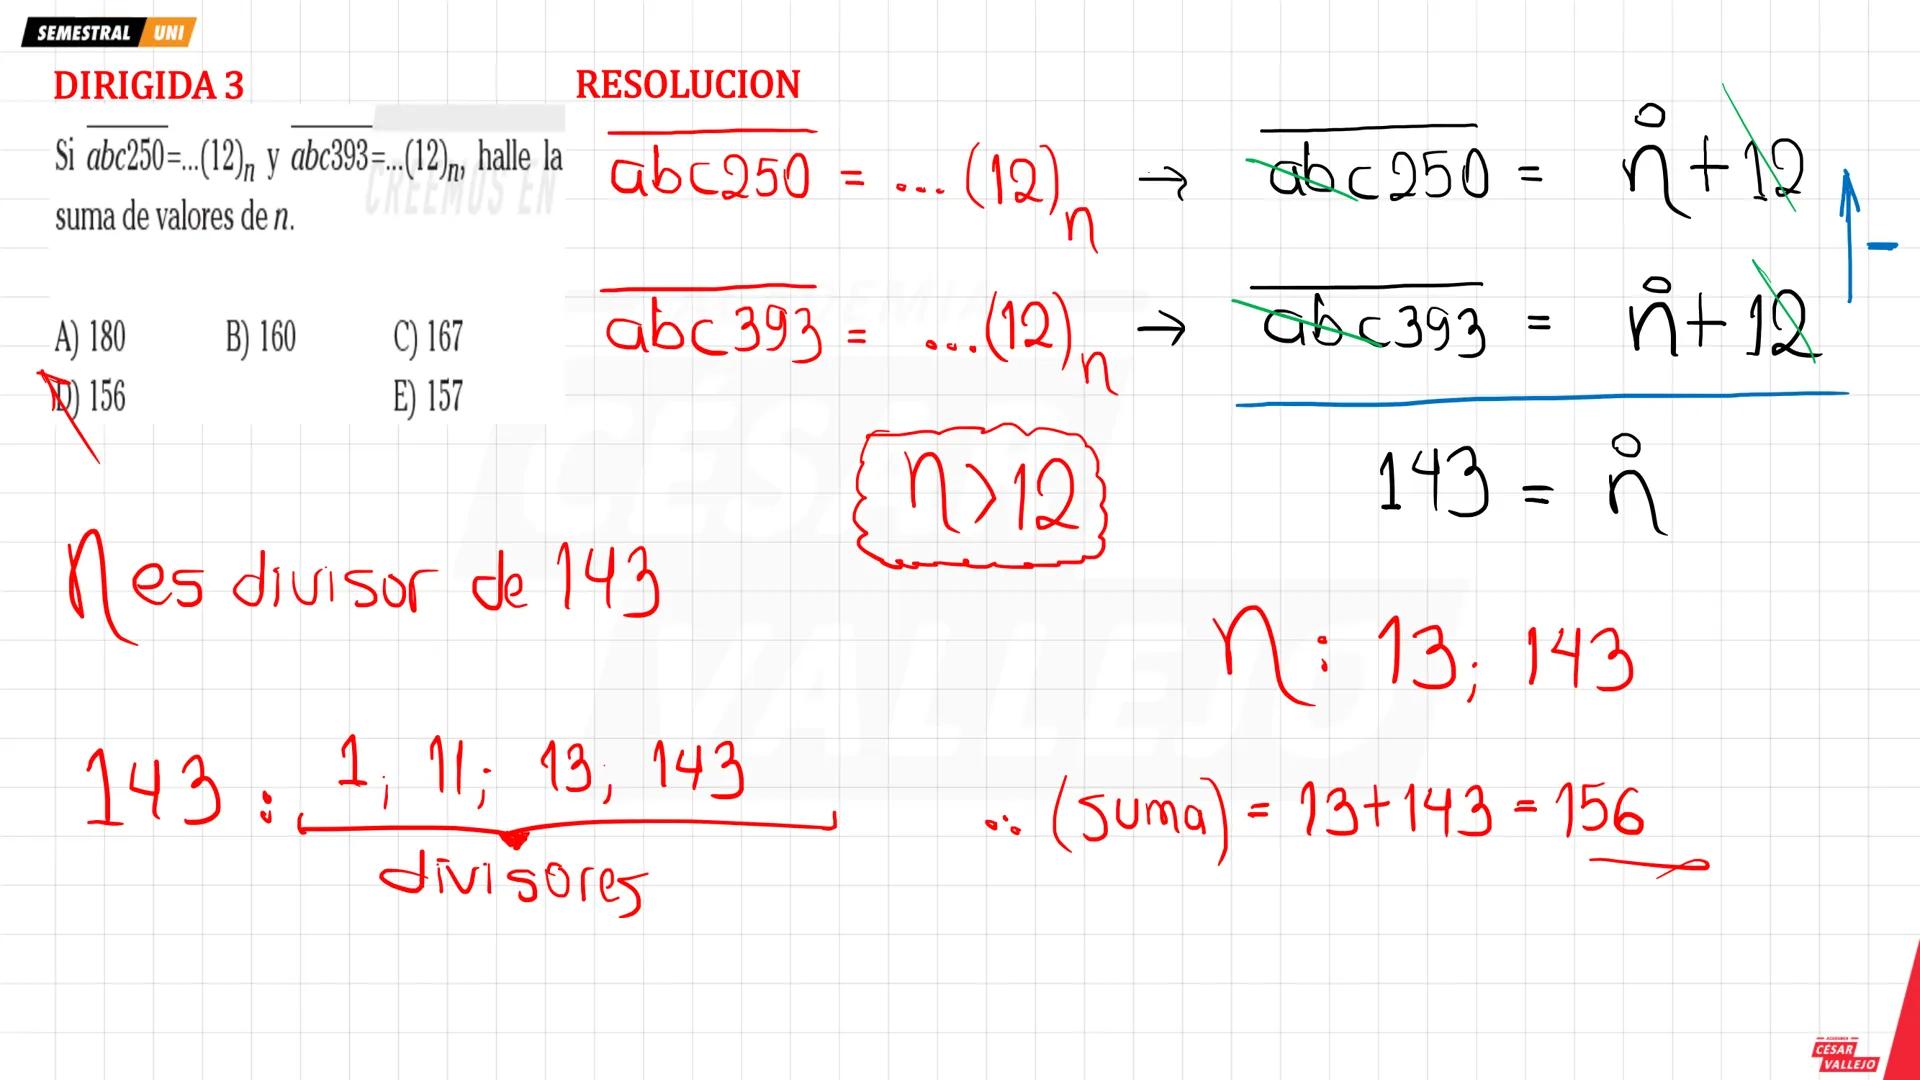 SEMESTRAL UNI
DIRIGIDA 3
Si abc250=...(12)n y abc393=...(12)n, halle la
suma de valores de n.
CREEMOS EN
A) 180 B) 160 C) 167
D) 156 E) 157
RESOLUCION
abc250 = ...(12)n → abc250 = n̊ + 12
abc393 = ...(12)n → abc393 = n̊ + 12
-
n>12
143 = n̊
n es divisor de 143
n: 13; 143
143 : 1; 11; 13; 143
divisores
∴ (suma) = 13+143 = 156
CÉSAR
VALLEJO
ACADEMIA
CÉSAR
VALLEJO